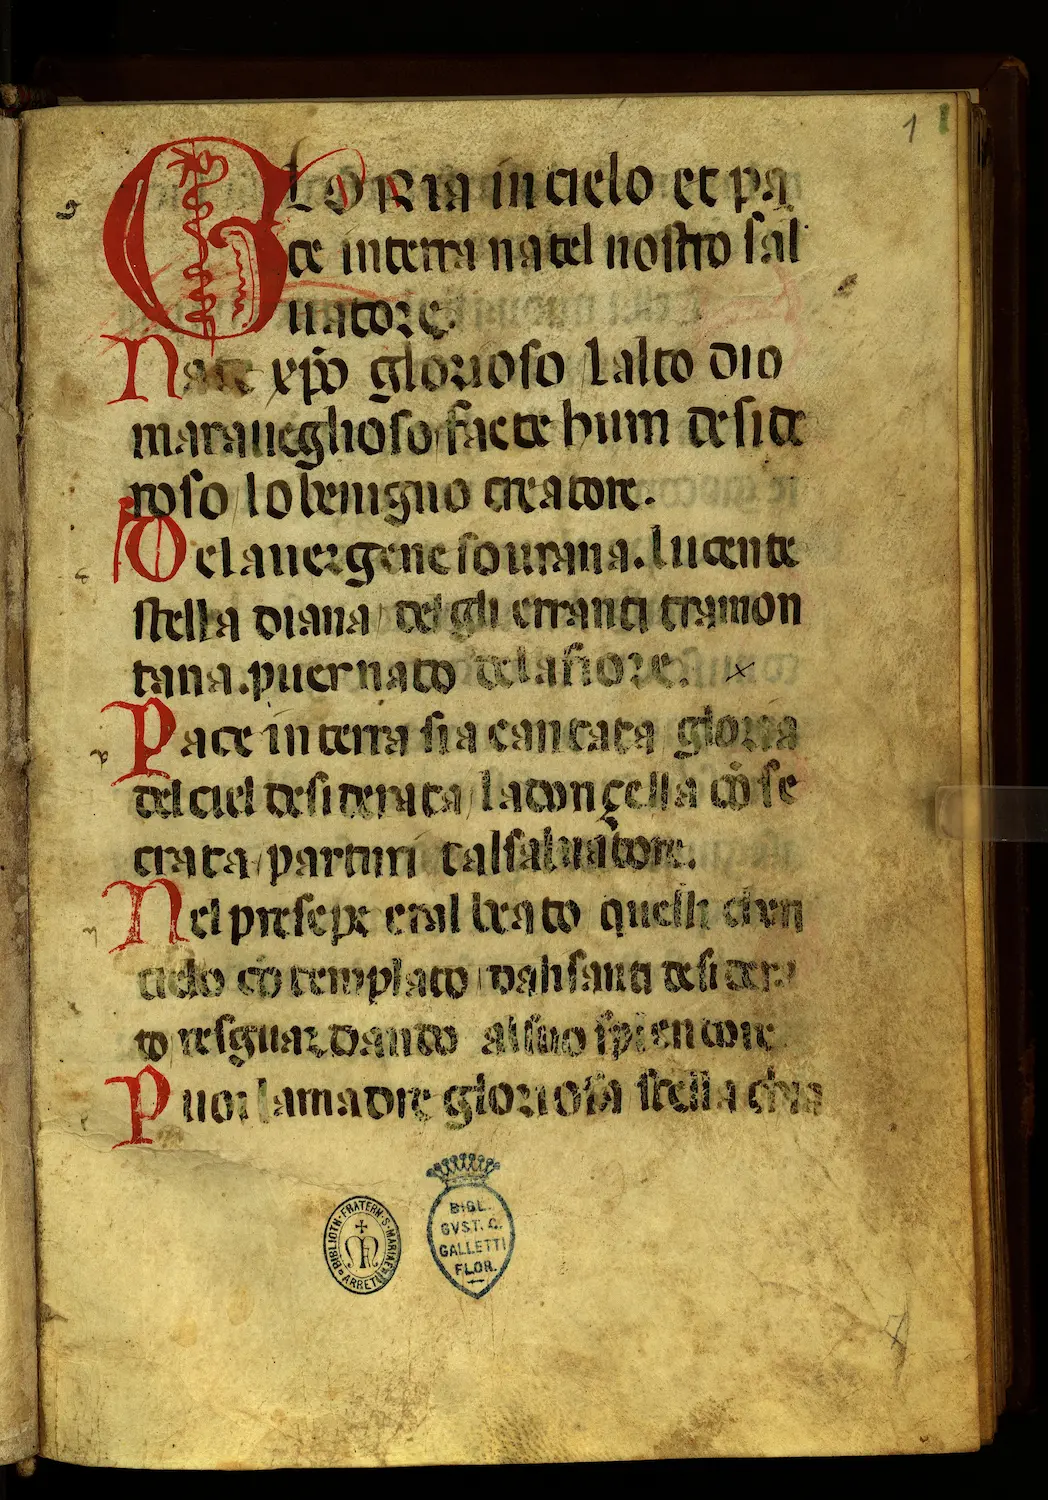 1
GLORIA in cielo et pa
ce interra natel nostro sal
uatore.
Nate xpo glorioso lalto dio
maraueglioso facte hum deside
roso lo benigno creatore.
Delauergene sourana. lucente
stella diana delgli erranti tramon
tana. puer nato delafiore. x
Pace in terra sia cantata gloria
delciel desiderata, ladonçella cose
crata, parturi talsaluatore.
Nel presepe eral beato quelli chen
cielo co templato dali santi desidera
to resguardando alsuo splendore
Puoi lamadre gloriosa stella chia
BIBLIOTH·FRATERN·S·MARIAE
M
ARRETII
BIGL.
GVST. C.
GALLETTI
FLOR.